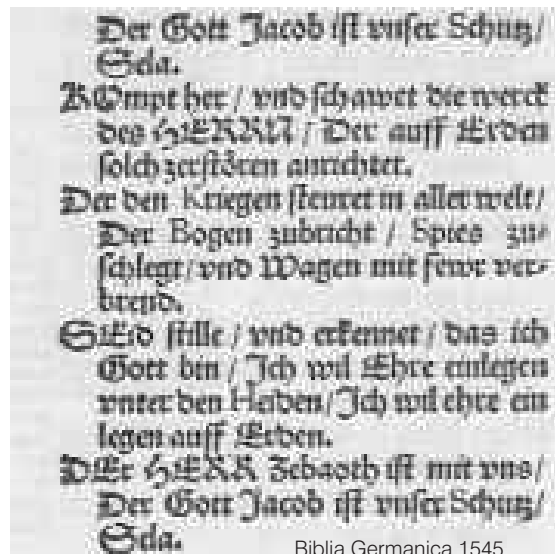 Der Gott Jacob iſt vnſer Schutz/
Sela.
KOmpt her / vnd ſchawet die werck
des HERRN / Der auff Erden
ſolch zerſtören anrichtet.
Der den Kriegen ſteuret in aller welt/
Der Bogen zubricht / Spies zu-
ſchlegt/ vnd Wagen mit fewr ver-
brend.
SEId ſtille / vnd erkennet / das ich
Gott bin / Ich wil Ehre einlegen
vnter den Heiden/ Ich wil ehre ein
legen auff Erden.
DEr HERR Zebaoth iſt mit vns/
Der Gott Jacob iſt vnſer Schutz/
Sela.
Biblia Germanica 1545